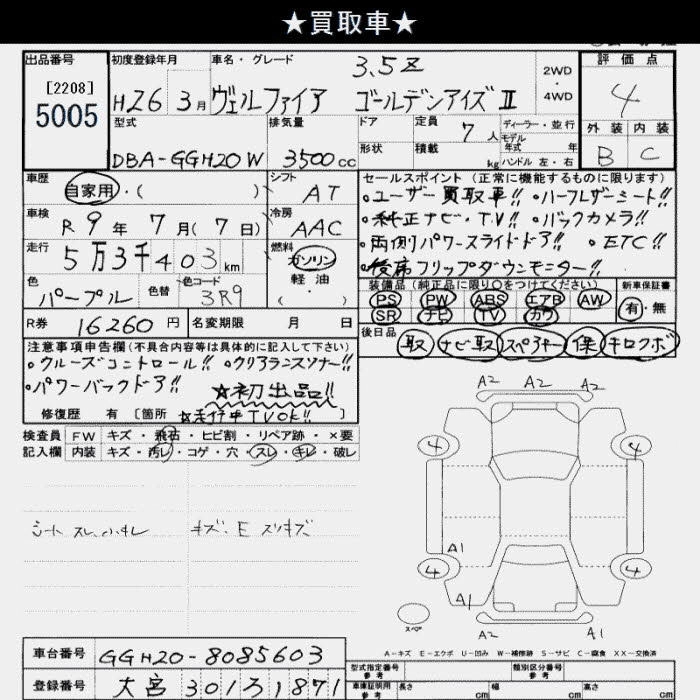 ★買取車★
出品番号 初度登録年月 車名・グレード 3.5Z 2WD・4WD 評価点
[2208]
5005 H26 3月 ヴェルファイア ゴールデンアイズⅡ 4
型式 排気量 ドア 定員 7人 ディーラー・並行 外装 内装
モデル年式 年
DBA-GGH20W 3500cc 形状 積載 kg ハンドル 左・右 B C
車歴 自家用・( ) シフト AT セールスポイント (正常に機能するものに限ります)
・ユーザー買取車!! ・ハーフレザーシート!!
車検 R9年7月(7日) 冷房 AAC ・純正ナビ・TV!! ・バックカメラ!!
走行 5万3千403km 燃料 ガソリン・軽油・( ) ・両側パワースライドドア!! ・ETC!!
・後席フリップダウンモニター!!
色 パープル 色替 色コード 3R9 装備品(純正品に限り○をつけてください) 新車保証書
PS PW ABS エアB AW 有・無
R券 16260円 名変期限 月 日 SR ナビ TV カワ
注意事項申告欄(不具合内容等は具体的に記入して下さい) 後日品 取 ナビ取 スペアキー 保 キロクボ
・クルーズコントロール!! ・クリアランスソナー!!
・パワーバックドア!! ☆初出品!!
修復歴 有 [箇所 ☆走行中TVOK!! ]
検査員記入欄 FW キズ・飛石・ヒビ割・リペア跡・×要
内装 キズ・汚レ・コゲ・穴・スレ・キレ・破レ
キズ・E スリキズ
A2 A2 A2
4 4
A1
4 4
A1
スペア A2 A1
A-キズ E-エクボ U-凹み W-補修跡 S-サビ C-腐食 XX-交換済
車台番号 GGH20-8085603 型式指定番号 参考 類別区分番号 参考
登録番号 大宮301ろ1871 車庫証明用 参考 長さ cm 幅 cm 高さ cm